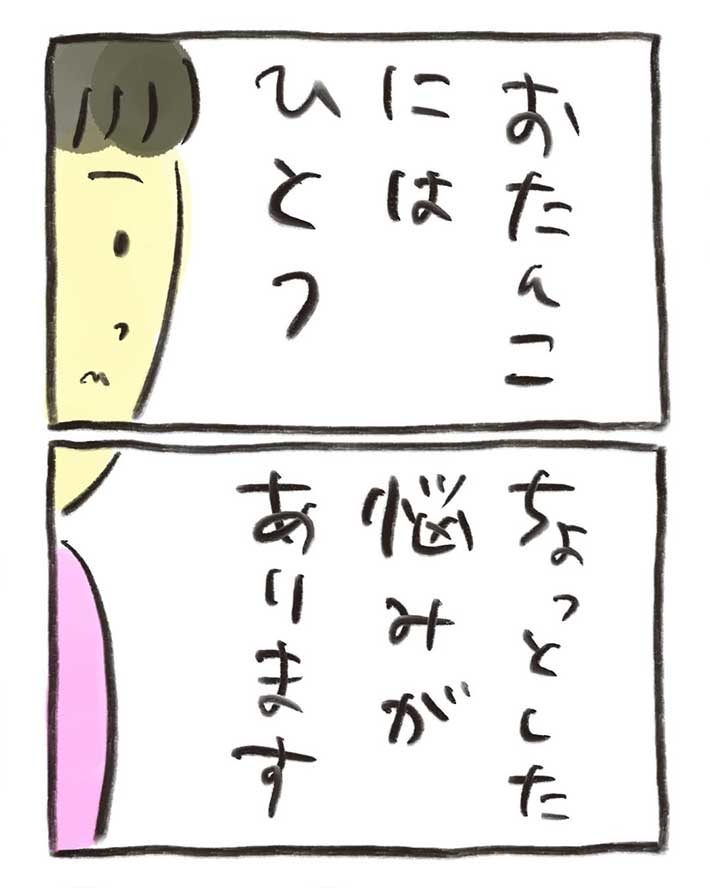 おたんこ
には
ひとつ
ちょっとした
悩みが
あります